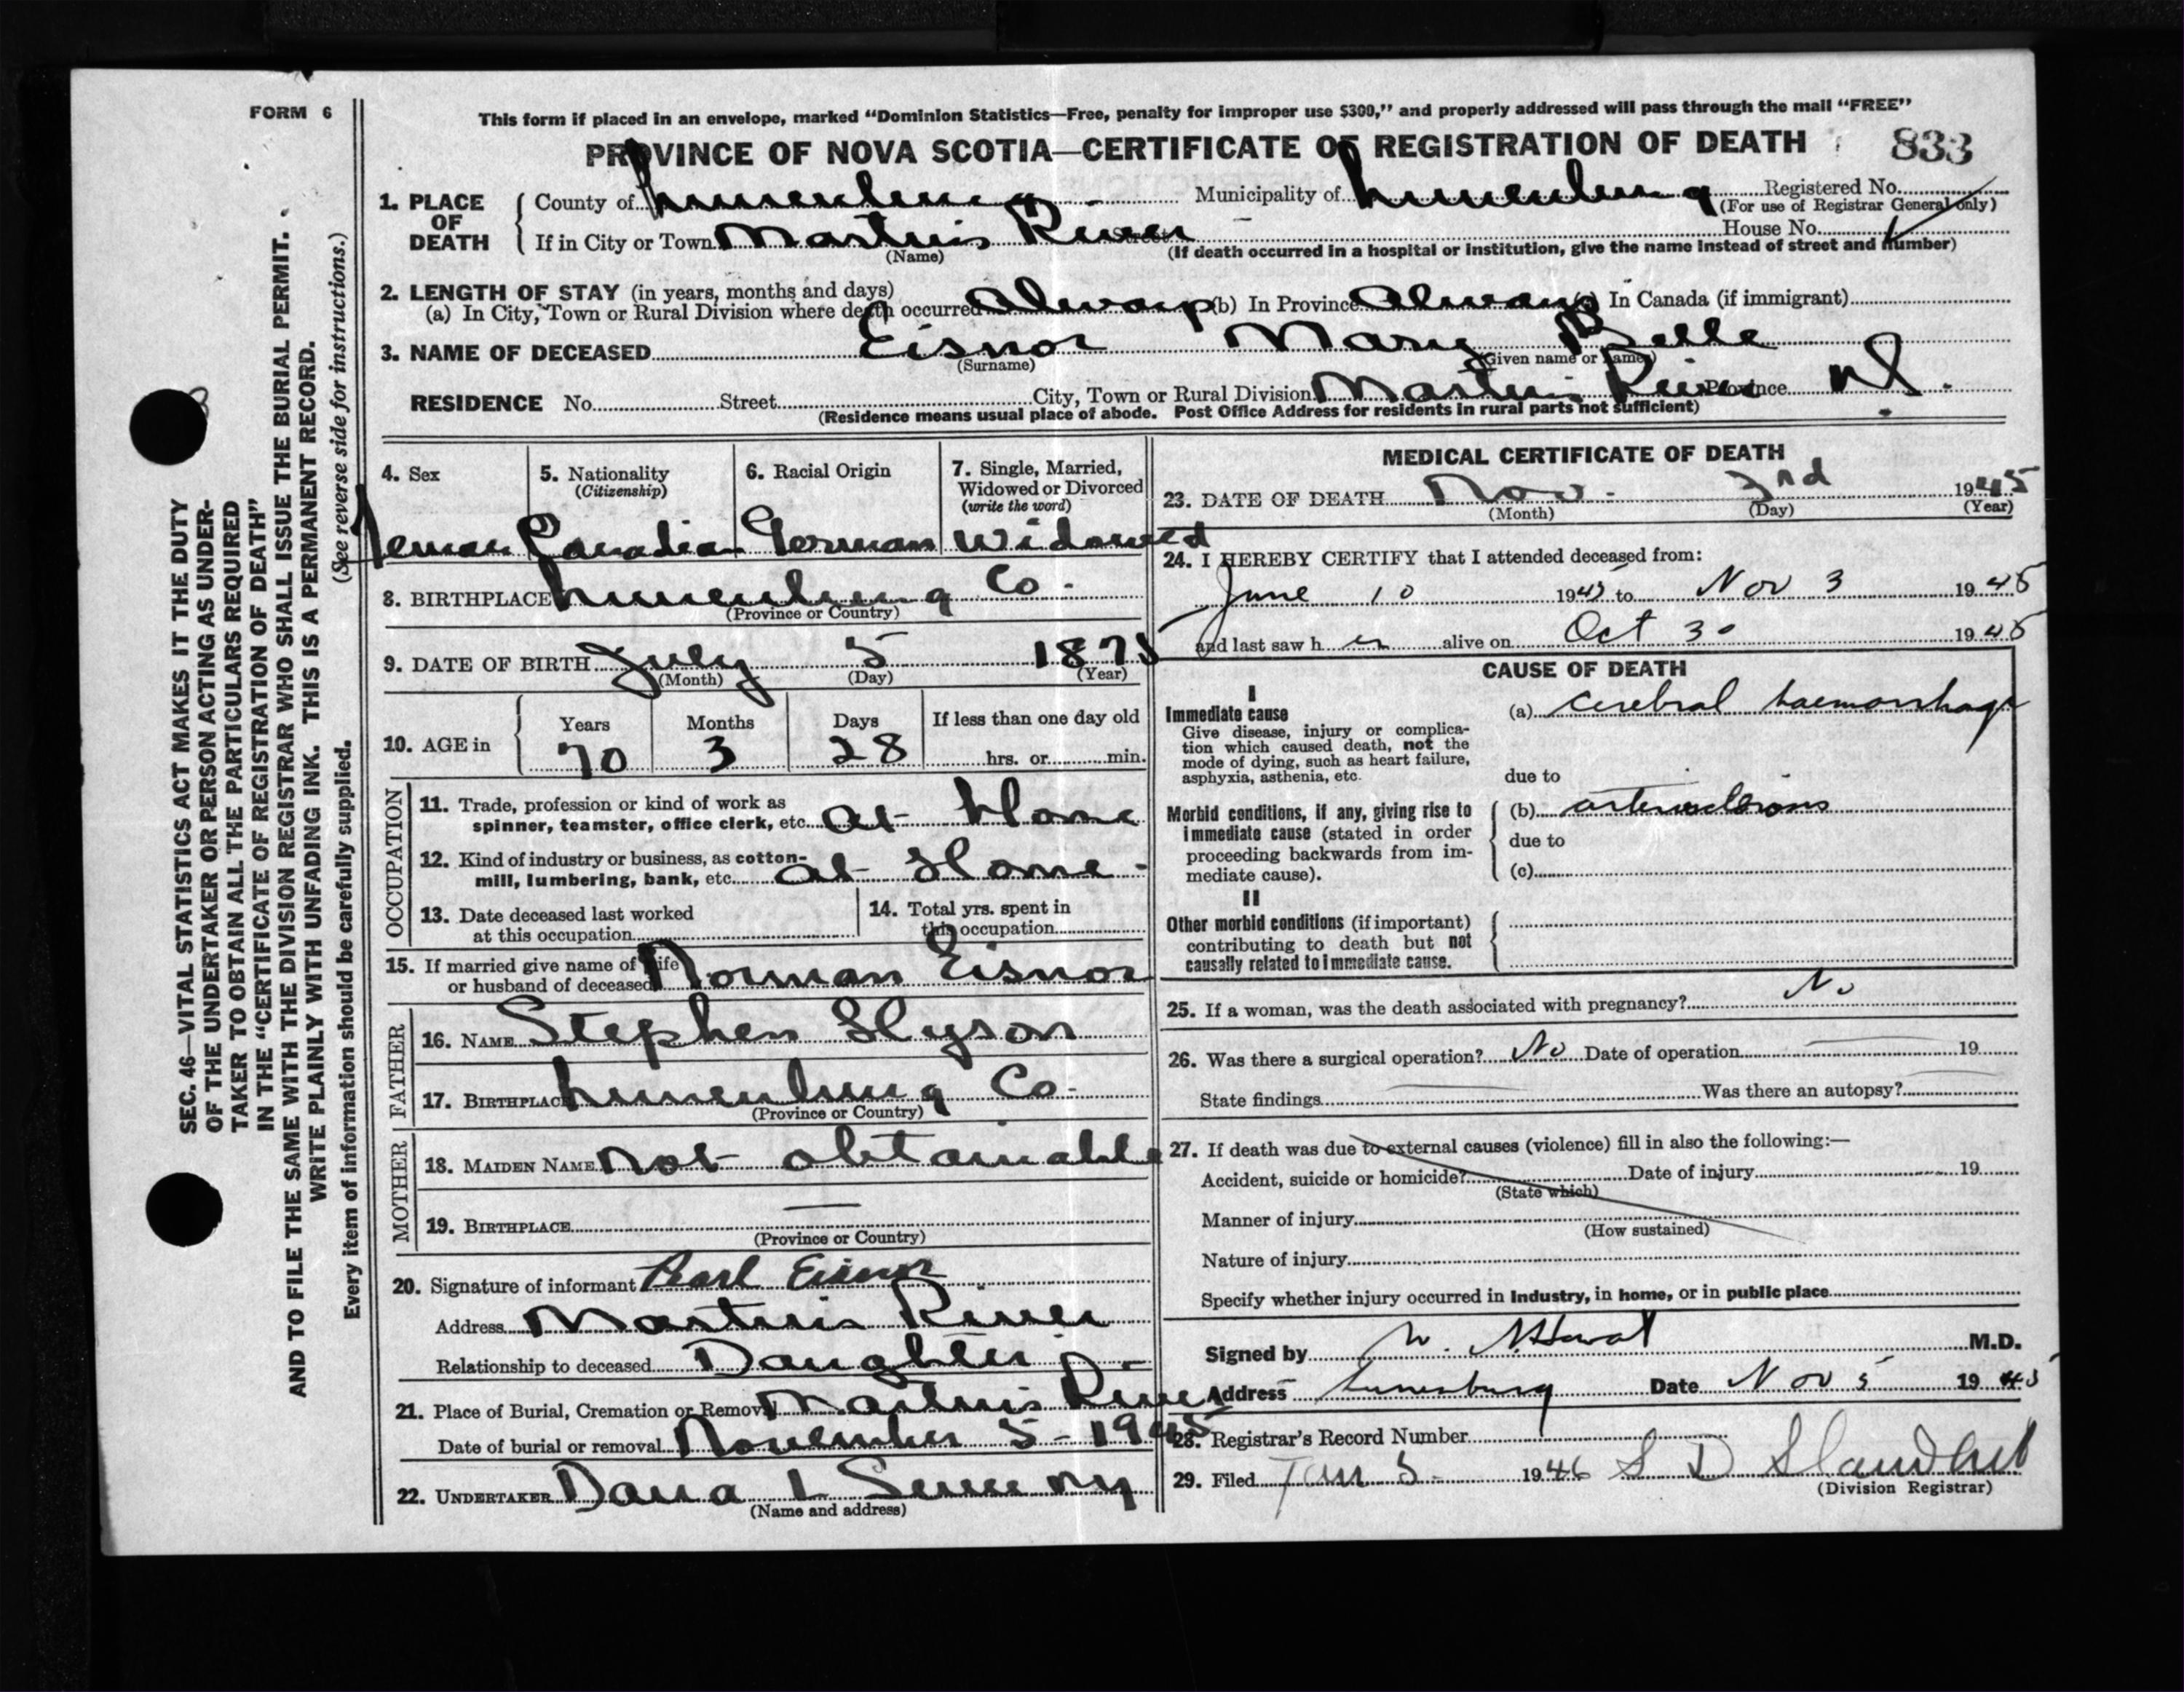 FORM 6
This form if placed in an envelope, marked “Dominion Statistics—Free, penalty for improper use $300,” and properly addressed will pass through the mail “FREE”
PROVINCE OF NOVA SCOTIA—CERTIFICATE OF REGISTRATION OF DEATH 833
1. PLACE OF DEATH
County of Lunenburg Municipality of Lunenburg Registered No.
(For use of Registrar General only)
If in City or Town Martins River Street House No.
(Name) (If death occurred in a hospital or institution, give the name instead of street and number)
2. LENGTH OF STAY (in years, months and days)
(a) In City, Town or Rural Division where death occurred Always (b) In Province Always (c) In Canada (if immigrant)
3. NAME OF DECEASED Eisnor Mary Belle
(Surname) (Given name or names)
RESIDENCE No. Street City, Town or Rural Division Martins River Province NS.
(Residence means usual place of abode. Post Office Address for residents in rural parts not sufficient)
4. Sex
5. Nationality
(Citizenship)
6. Racial Origin
7. Single, Married,
Widowed or Divorced
(write the word)
Canadian German Widowed
8. BIRTHPLACE Lunenburg Co.
(Province or Country)
9. DATE OF BIRTH July 5 1875
(Month) (Day) (Year)
10. AGE in
Years Months Days If less than one day old
70 3 28 hrs. or min.
OCCUPATION
11. Trade, profession or kind of work as
spinner, teamster, office clerk, etc. at Home
12. Kind of industry or business, as cotton-
mill, lumbering, bank, etc. at Home
13. Date deceased last worked
at this occupation
14. Total yrs. spent in
this occupation
15. If married give name of wife
or husband of deceased Norman Eisnor
FATHER
16. NAME Stephen Hyson
17. BIRTHPLACE Lunenburg Co.
(Province or Country)
MOTHER
18. MAIDEN NAME not obtainable
19. BIRTHPLACE —
(Province or Country)
20. Signature of informant Pearl Eisnor
Address Martins River
Relationship to deceased Daughter
21. Place of Burial, Cremation or Removal Martins River
Date of burial or removal November 5 - 1945
22. UNDERTAKER Dana L
(Name and address)
MEDICAL CERTIFICATE OF DEATH
23. DATE OF DEATH Nov. 3rd 1945
(Month) (Day) (Year)
24. I HEREBY CERTIFY that I attended deceased from:
June 10 1945 to Nov 3 1945
and last saw her alive on Oct 30 1945
CAUSE OF DEATH
I
Immediate cause
Give disease, injury or complica-
tion which caused death, not the
mode of dying, such as heart failure,
asphyxia, asthenia, etc.
(a) cerebral haemorrhage
due to
Morbid conditions, if any, giving rise to
immediate cause (stated in order
proceeding backwards from im-
mediate cause).
(b) arteriosclerosis
due to
(c)
II
Other morbid conditions (if important)
contributing to death but not
causally related to immediate cause.
25. If a woman, was the death associated with pregnancy? No
26. Was there a surgical operation? No Date of operation 19
State findings Was there an autopsy?
27. If death was due to external causes (violence) fill in also the following:—
Accident, suicide or homicide? Date of injury 19
(State which)
Manner of injury
(How sustained)
Nature of injury
Specify whether injury occurred in Industry, in home, or in public place
Signed by M.D.
Address Lunenburg Date Nov 5 1945
28. Registrar's Record Number
29. Filed Jan 5 1946 S D
(Division Registrar)
SEC. 46—VITAL STATISTICS ACT MAKES IT THE DUTY
OF THE UNDERTAKER OR PERSON ACTING AS UNDER-
TAKER TO OBTAIN ALL THE PARTICULARS REQUIRED
IN THE “CERTIFICATE OF REGISTRATION OF DEATH”
AND TO FILE THE SAME WITH THE DIVISION REGISTRAR WHO SHALL ISSUE THE BURIAL PERMIT.
WRITE PLAINLY WITH UNFADING INK. THIS IS A PERMANENT RECORD.
(See reverse side for instructions.)
Every item of information should be carefully supplied.